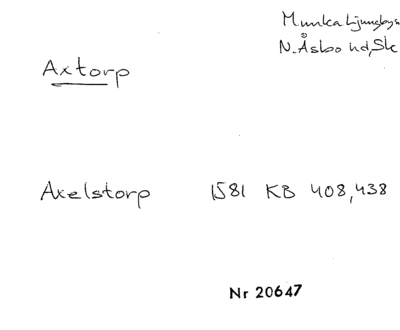 Munka Ljungby s
N. Åsbo hd, Sk
Axtorp
Axelstorp 1581 KB 408, 438
Nr 20647